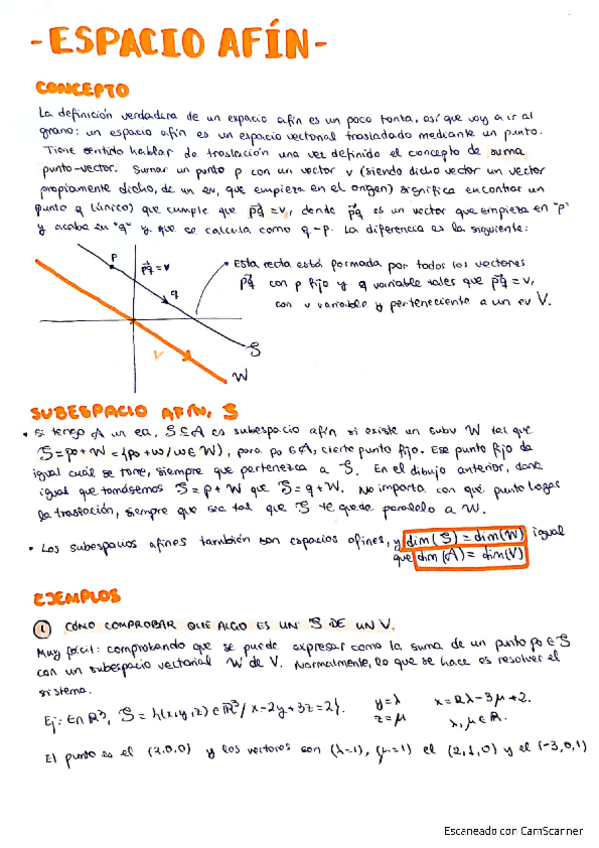 -ESPACIO AFÍN-
CONCEPTO
La definición verdadera de un espacio afín es un poco tonta, así que voy a ir al
grano: un espacio afín es un espacio vectorial trasladado mediante un punto.
Tiene sentido hablar de traslación una vez definido el concepto de suma
punto-vector. Sumar un punto p con un vector v (siendo dicho vector un vector
propiamente dicho, de un ev, que empieza en el origen) significa encontrar un
punto q (único) que cumple que pq⃗ = v, donde pq⃗ es un vector que empieza en "p"
y acaba en "q" y que se calcula como q-p. La diferencia es la siguiente:
p
pq⃗ = v
q
v
S
W
Esta recta está formada por todos los vectores
pq⃗ con p fijo y q variable tales que pq⃗ = v,
con v variable y perteneciente a un ev V.
SUBESPACIO AFÍN, S
• Si tengo A un ea, S⊆A es subespacio afín si existe un subv W tal que
S=p₀+W={p₀+w/w∈W}, para p₀∈A, cierto punto fijo. Ese punto fijo da
igual cuál se tome, siempre que pertenezca a S. En el dibujo anterior, daría
igual que tomásemos S=p+W que S=q+W. No importa con qué punto hagas
la traslación, siempre que sea tal que S te quede paralelo a W.
• Los subespacios afines también son espacios afines, y dim(S)=dim(W) igual
que dim(A)=dim(V)
EJEMPLOS
① CÓMO COMPROBAR QUE ALGO ES UN S DE UN V.
Muy fácil: comprobando que se puede expresar como la suma de un punto p₀∈S
con un subespacio vectorial W de V. Normalmente, lo que se hace es resolver el
sistema.
Ej: En ℝ³, S={(x,y,z)∈ℝ³/x-2y+3z=2}. y=λ x=2λ-3μ+2.
z=μ λ,μ∈ℝ.
El punto es el (2,0,0) y los vectores son (λ=1), (μ=1) el (2,1,0) y el (-3,0,1)
Escaneado con CamScanner